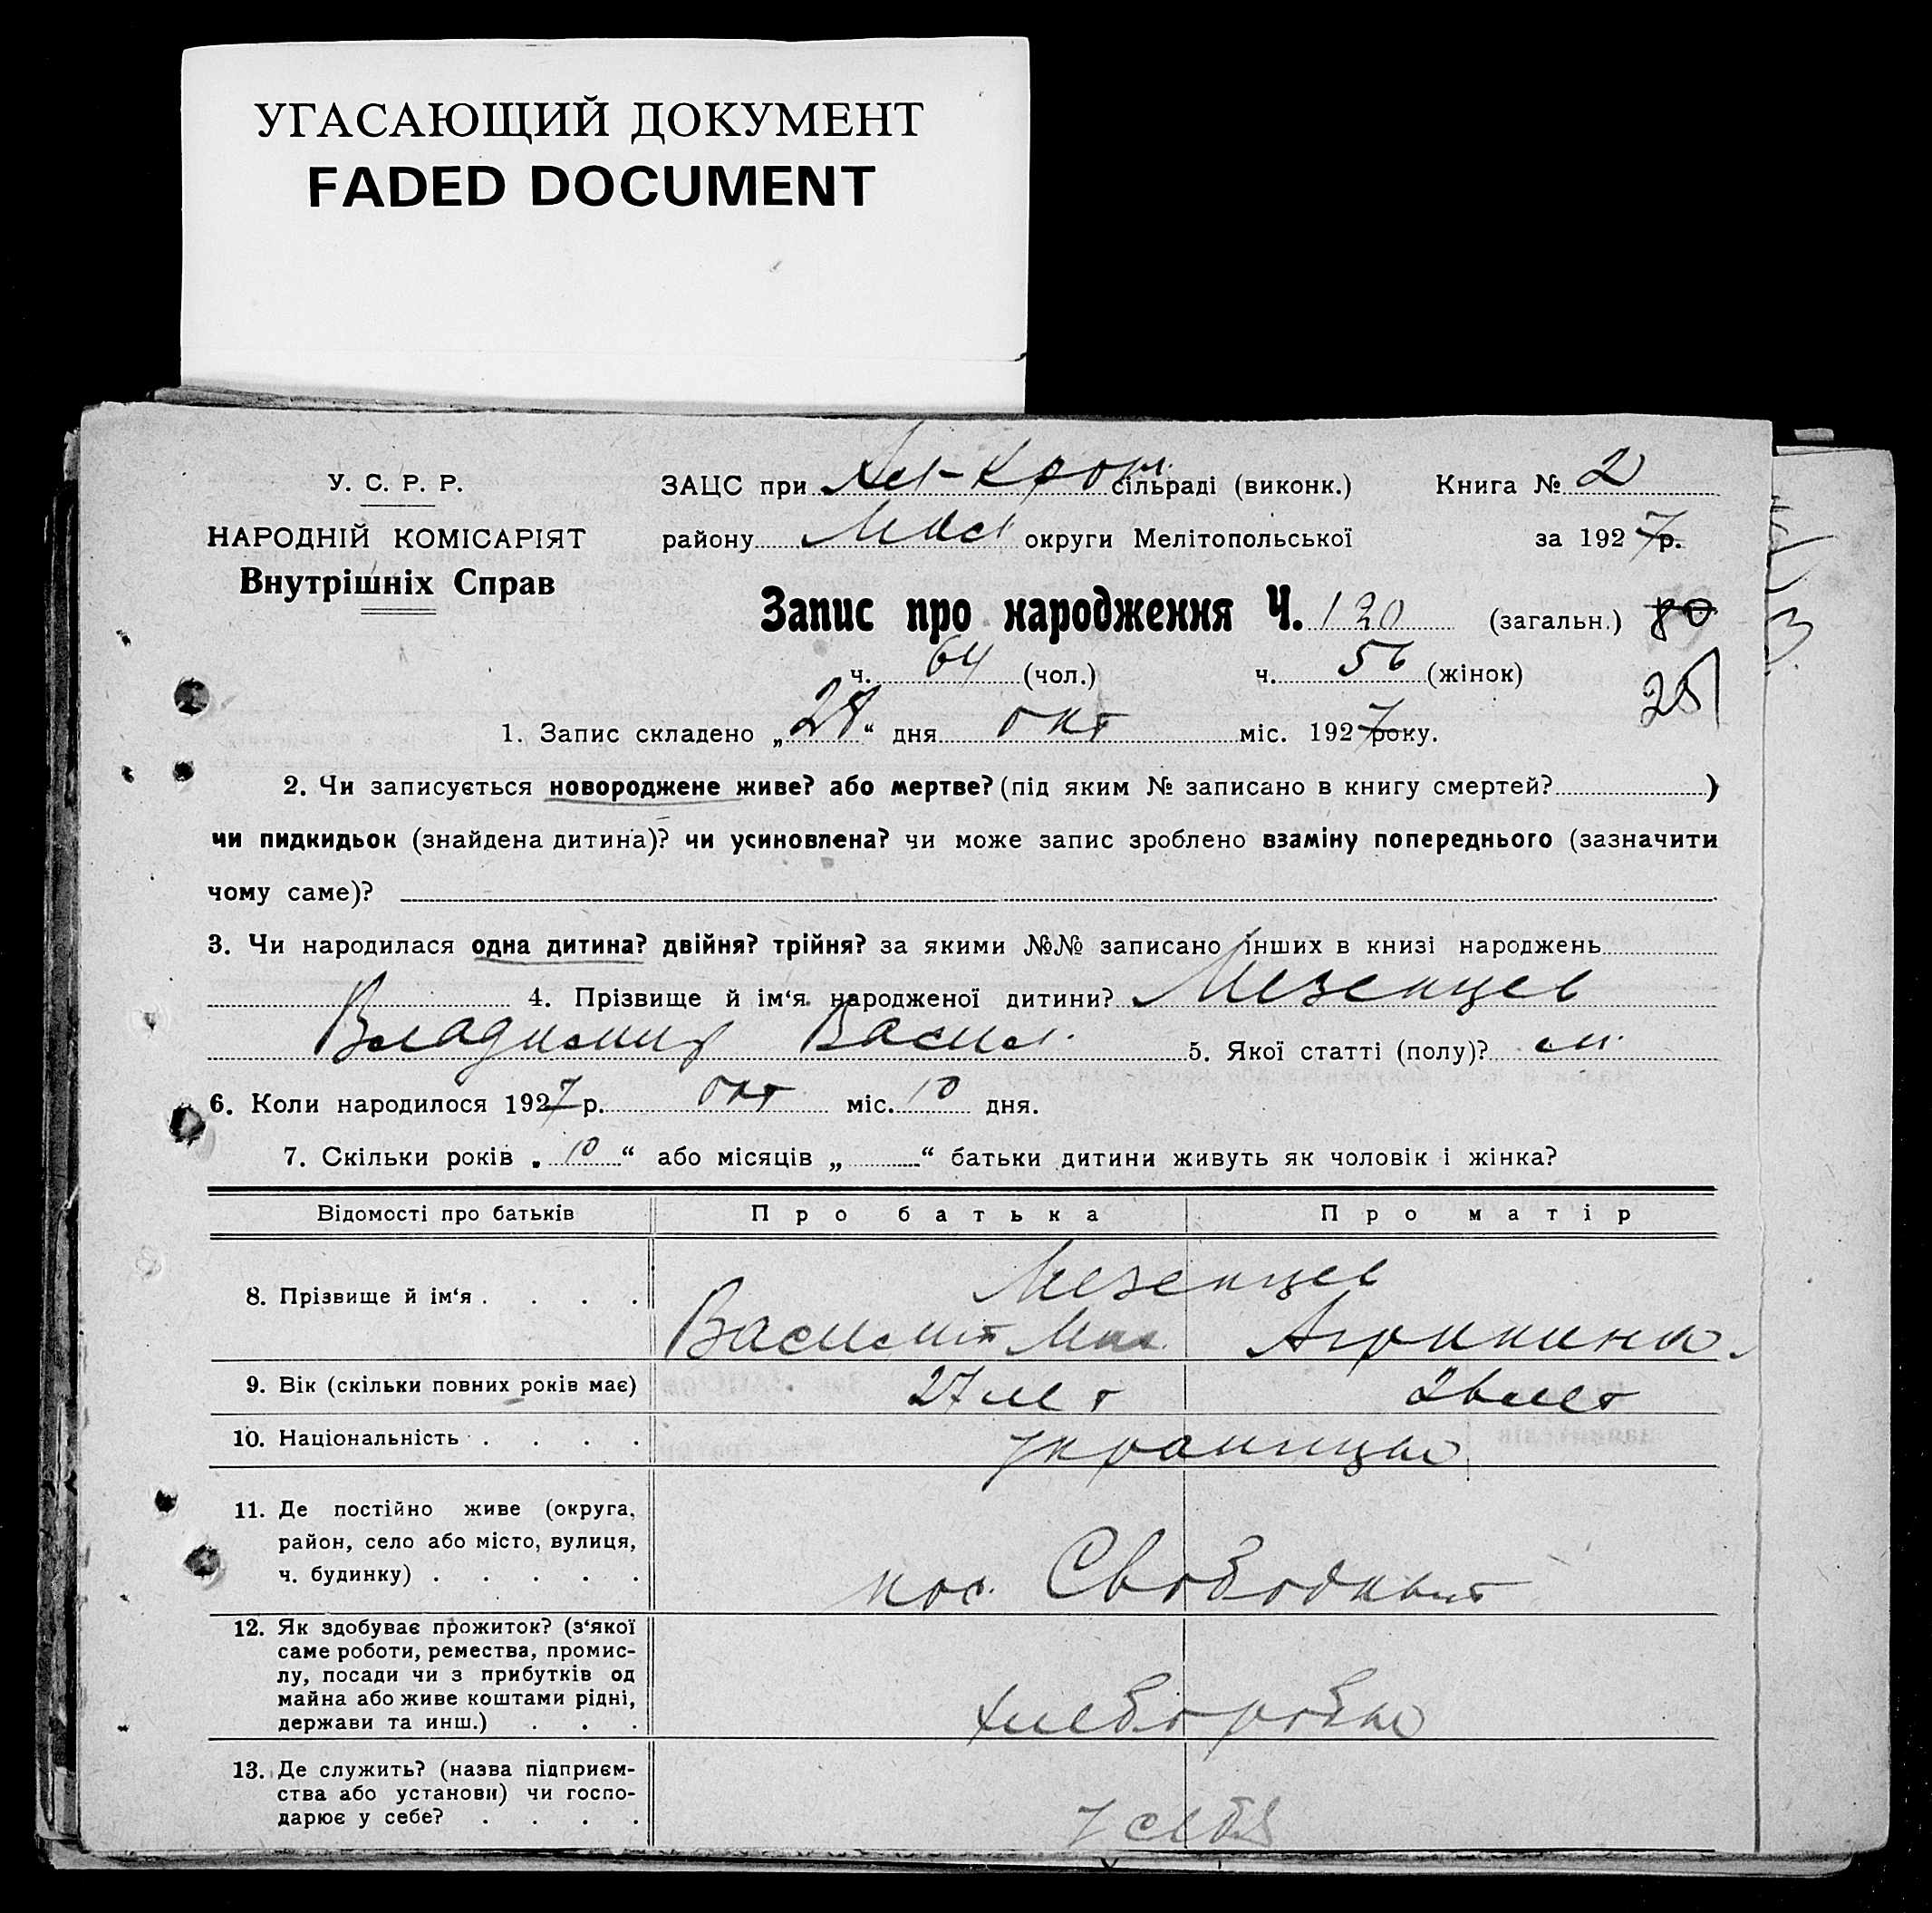 УГАСАЮЩИЙ ДОКУМЕНТ
FADED DOCUMENT
У. С. Р. Р.
НАРОДНІЙ КОМІСАРІЯТ
Внутрішніх Справ
ЗАЦС при сільраді (виконк.) Книга № 2
району округи Мелітопольської за 1927 р.
Запис про народження Ч. 120 (загальн.) 80
ч. 64 (чол.) ч. 56 (жінок)
1. Запис складено „28“ дня окт міс. 1927 року.
2. Чи записується новороджене живе? або мертве? (під яким № записано в книгу смертей? )
чи пидкидьок (знайдена дитина)? чи усиновлена? чи може запис зроблено взаміну попереднього (зазначити
чому саме)?
3. Чи народилася одна дитина? двійня? трійня? за якими №№ записано інших в книзі народжень
4. Прізвище й ім‘я народженої дитини? Мезенцев
Владимир Васил. 5. Якої статті (полу)? м.
6. Коли народилося 1927 р. окт міс. 10 дня.
7. Скільки років „10“ або місяців „ “ батьки дитини живуть як чоловік і жінка?
Відомості про батьків Про батька Про матір
8. Прізвище й ім‘я Мезенцев
Василий Мих. Агрипина
9. Вік (скільки повних років має) 27 лет 26 лет
10. Національність украинцы
11. Де постійно живе (округа,
район, село або місто, вулиця,
ч. будинку) пос. Свободный
12. Як здобуває прожиток? (з‘якої
саме роботи, ремества, промис-
лу, посади чи з прибутків од
майна або живе коштами рідні,
держави та инш.) хлеборобы
13. Де служить? (назва підприєм-
ства або установи) чи госпо-
дарює у себе? у себя